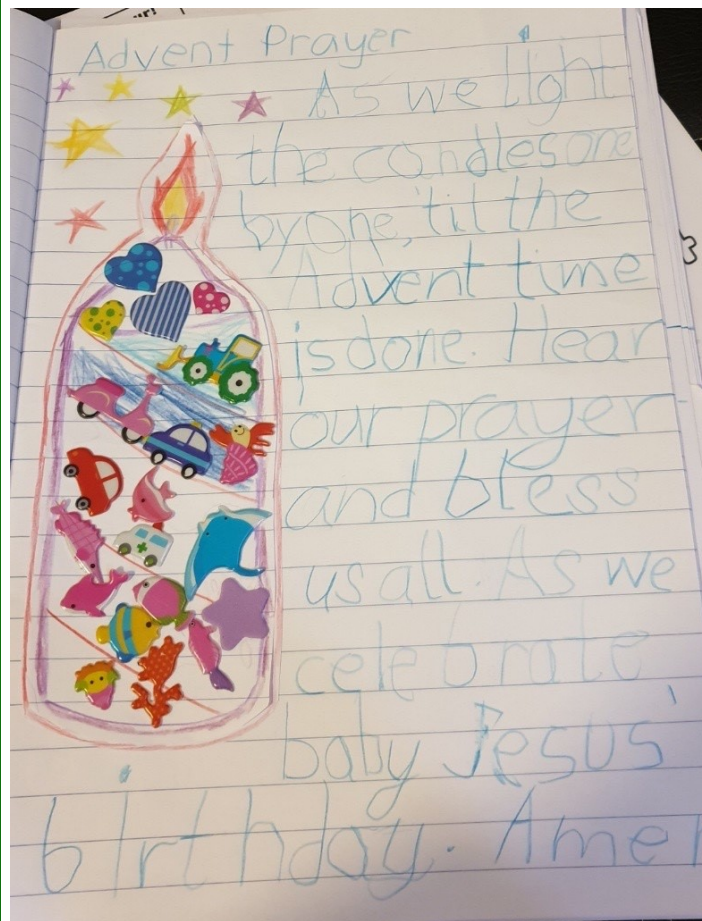 Advent Prayer
As we light
the candles one
by one, 'til the
Advent time
is done. Hear
our prayer
and bless
us all. As we
celebrate
baby Jesus'
birthday. Amen